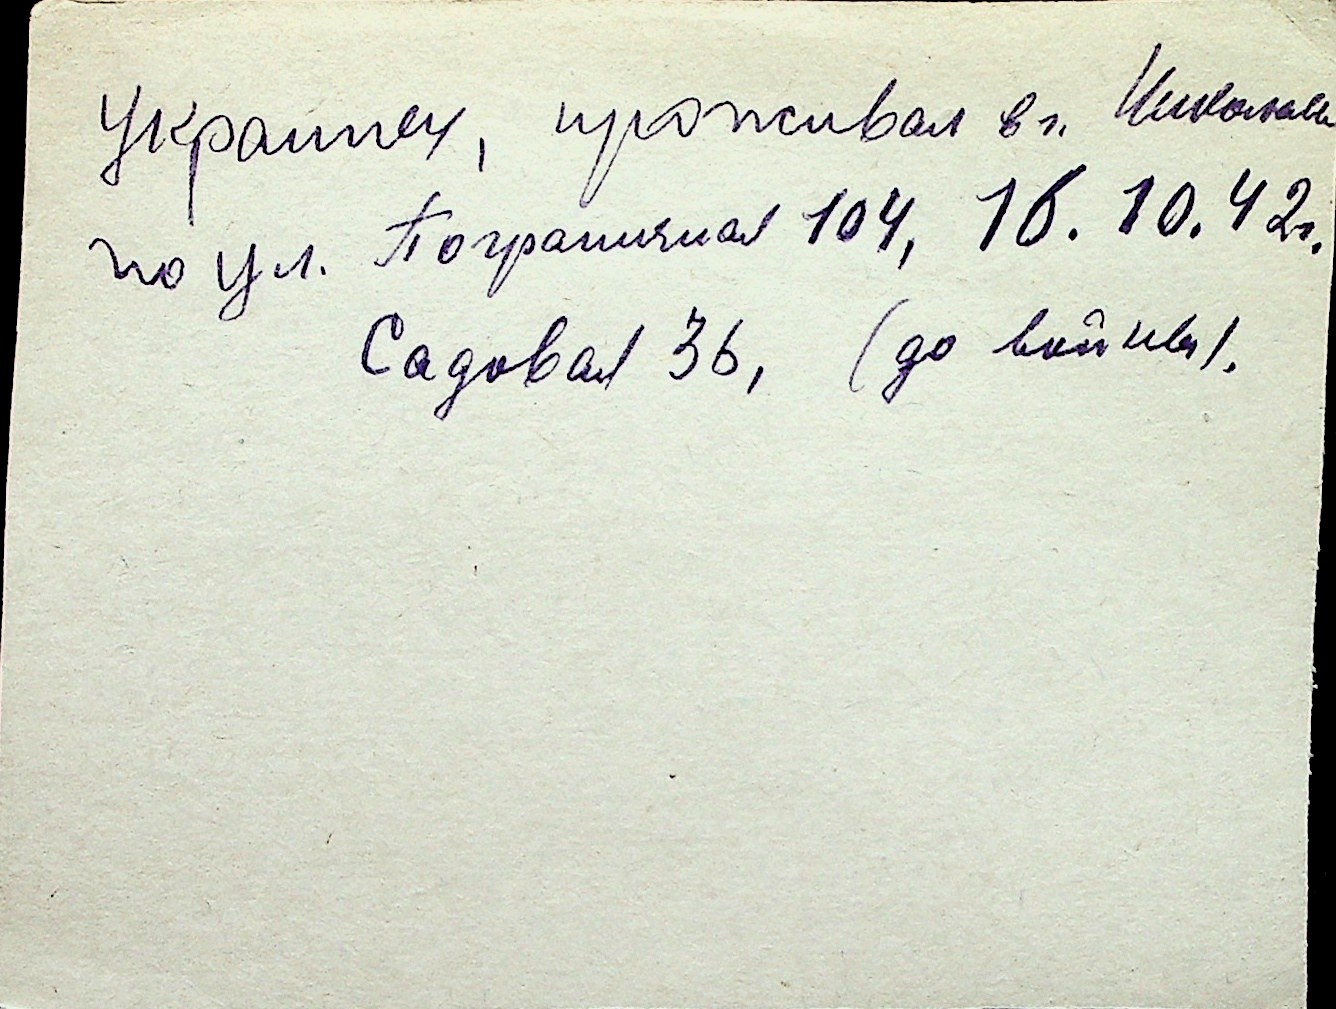 Украинец, проживал в г. Николаев
по ул. Пограничная 104, 16.10.42г.
Садовая 36, (до войны).